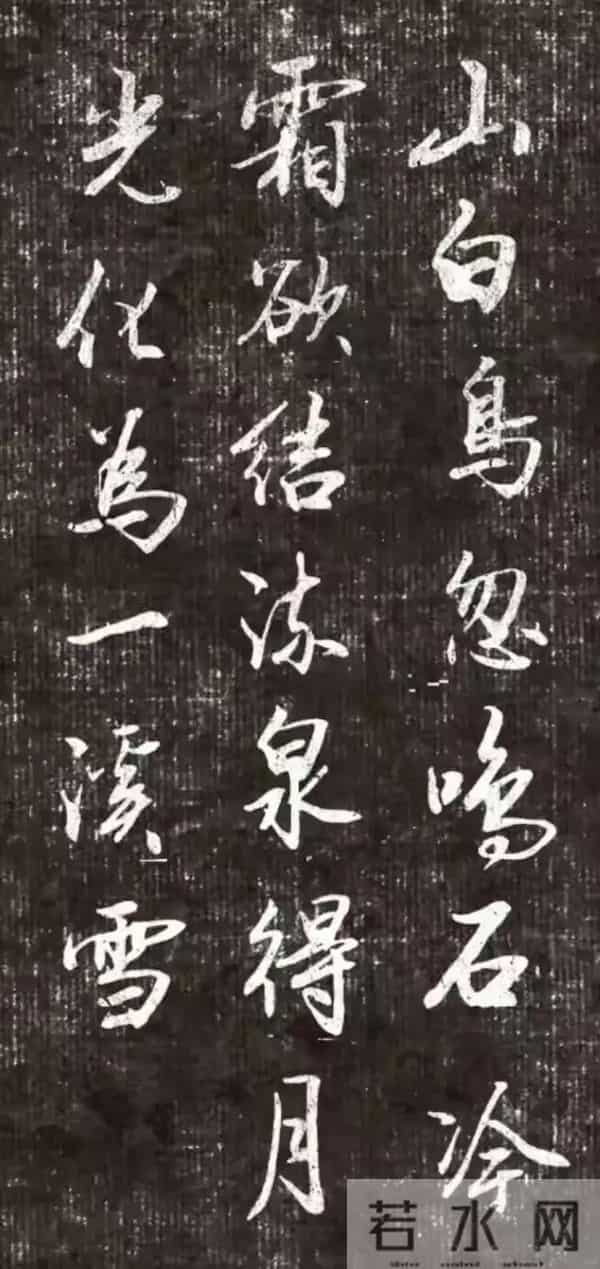 山白鳥忽鳴石冷
霜欲結流泉得月
光化為一溪雪
若水网